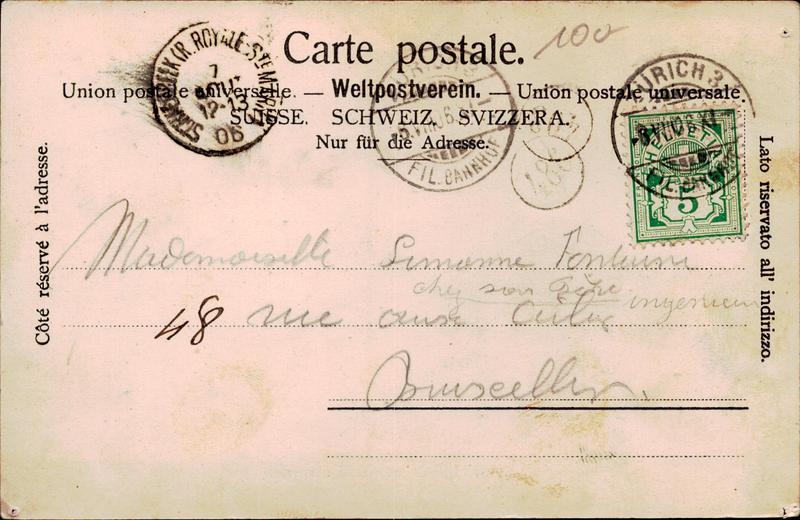 Carte postale.
100
Union postale universelle. — Weltpostverein. — Union postale universale.
SUISSE. SCHWEIZ. SVIZZERA.
Nur für die Adresse.
Côté réservé à l'adresse.
Lato riservato all' indirizzo.
SCHAERBEEK (R. ROYALE-STE MARIE)
7
12-13
06
FIL. BAHNHOF
ZÜRICH 3
HELVETIA
5
Mademoiselle Simonne
chez son Père ingénieur
48 rue aux
Bruxelles.